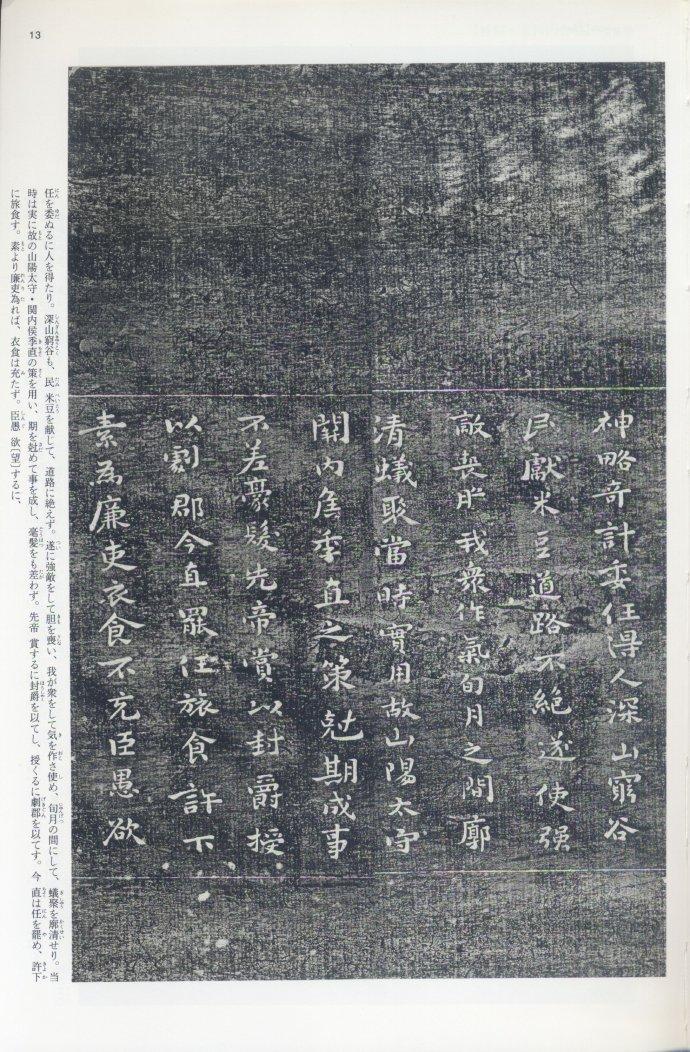 13
神略奇計委任得人深山窮谷
民獻米豆道路不絕遂使强
敵喪膽我衆作氣旬月之閒廓
清蟻聚當時實用故山陽太守
關内侯季直之策尅期成事
不差豪髮先帝賞以封爵授
以劇郡今直罷任旅食許下
素爲廉吏衣食不充臣愚欲
任を委ぬるに人を得たり。深山窮谷も、民 米豆を献じて、道路に絶えず。遂に強敵をして胆を喪い、我が衆をして気を作さ使め、旬月の間にして、蟻聚を廓清せり。当
時は実に故の山陽太守・関内侯季直の策を用い、期を尅めて事を成し、毫髪をも差わず。先帝 賞するに封爵を以てし、授くるに劇郡を以てす。今 直は任を罷め、許下
に旅食す。素より廉吏為れば、衣食は充たず。臣愚 欲〔望〕するに、